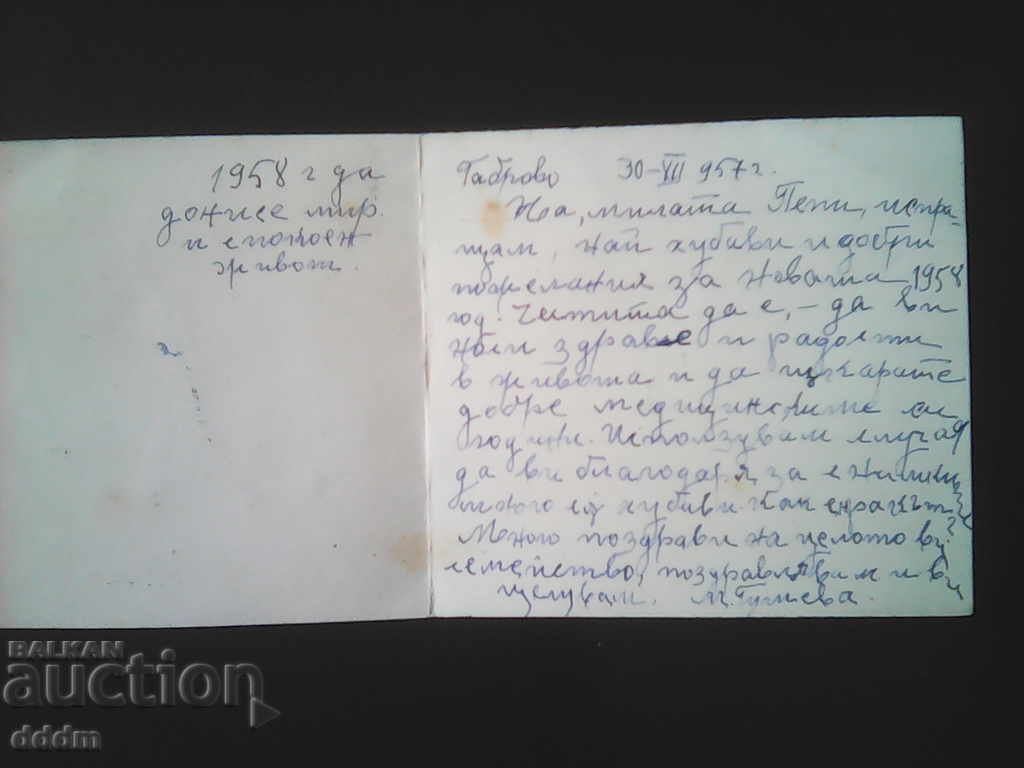 1958 г да
донисе мир.
и спокоен
живот.
Габрово 30-XII 957 г.
На, милата Пепи, изпра-
щам, най хубави и добри
пожелания за Новата 1958
год. Чистита да е, - да ви
носи здраве и радости
в живота и да изкарате
добре медицинските си
години. Използувам случая
да ви благодаря за
много са хубави. Как
Много поздрави на целото ви
семейство, поздравлявам и ви
целувам. М.
BALKAN
auction
dddm